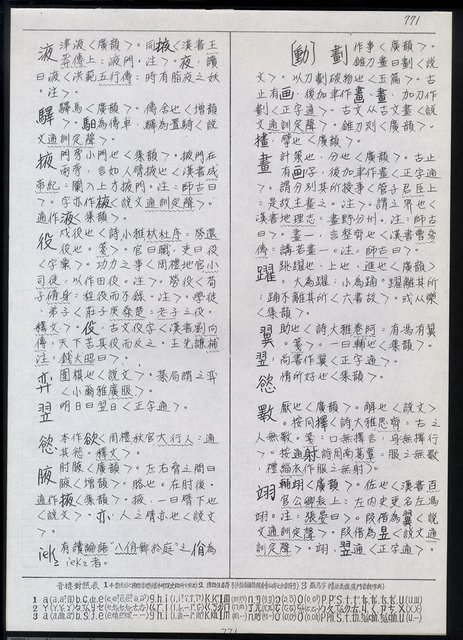 771
液 津液〈廣韻〉。同掖〈漢書王
莽傳上：液門。注〉。夜，讀
曰液〈洪範五行傳：時有脂夜之妖
。注〉。
驛 驛馬〈廣韻〉。傳舍也〈增韻
〉。馹為傳車，驛為置騎〈說
文通訓定聲〉。
掖 門旁小門也〈集韻〉。掖門在
兩旁，言如人臂掖也〈漢書成
帝紀：闌入上方掖門。注：師古曰
〉。字亦作掖〈說文通訓定聲〉。
通作液〈集韻〉。
役 戍役也〈詩小雅杕杜序：勞還
役也。箋〉。官曰職，吏曰役
〈字彙〉。功力之事〈周禮地官小
司徒：以作田役。注〉。勞役〈荀
子脩身：程役而不錄。注〉。學徒
弟子〈莊子庚桑楚：老子之役。
釋文〉。伇，古文役字〈漢書劉向
傳：天下苦其役而反之。王先謙補
注：錢大昭曰〉。
弈 圍棋也〈說文〉。棊局謂之弈
〈小爾雅廣服〉。
翌 明日曰翌日〈正字通〉。
慾 本作欲〈周禮秋官大行人：通
其慾。釋文〉。
腋 肘腋〈廣韻〉。左右脅之間曰
腋〈增韻〉。胳也。在肘後。
通作掖〈集韻〉。掖，一曰臂下也
〈說文〉。亦，人之臂亦也〈說文
〉。
有讀論語"八佾舞於庭"之佾為
者。
〔動〕劃 作事〈廣韻〉。
錐刀畫曰劃〈說
文〉。以刀劃破物也〈玉篇〉。古
止有画，後加聿作畫、畫，加刀作
劃〈正字通〉。古文从古文畫〈說
文通訓定聲〉。錐刀刻〈廣韻〉。
擘也〈廣韻〉。
畫 計策也，分也〈廣韻〉。古止
有画字，後加聿作畫〈正字通
〉。謂分別其所授事〈管子君臣上
：是故主畫之。注〉。謂之界也〈
漢書地理志：畫野分州。注：師古
曰〉。畫一，言整齊也〈漢書曹參
傳：講若畫一。注：師古曰〉。
躍 跳躍也，上也，進也〈廣韻〉
。大為躍，小為踊。躍離其所
，踊不離其所〈六書故〉。或从樂
〈集韻〉。
翼 助也〈詩大雅卷阿：有馮有翼
。箋〉。一曰輔也〈集韻〉。
翌，尚書作翼〈正字通〉。
慾 情所好也〈集韻〉。
斁 厭也〈廣韻〉。解也〈說文〉
。按同擇〈詩大雅思齊：古之
人無斁。箋：口無擇言，身無擇行
〉。按通射〈詩周南葛覃：服之無斁
，禮緇衣作服之無射〉。
翊 輔翊〈廣韻〉。佐也〈漢書百
官公卿表上：左內史更名左馮
翊。注：張晏曰〉。段借為翼〈說
文通訓定聲〉。段借為昱〈說文通
訓定聲〉。翊，翌同〈正字通〉。
音標對照表
771